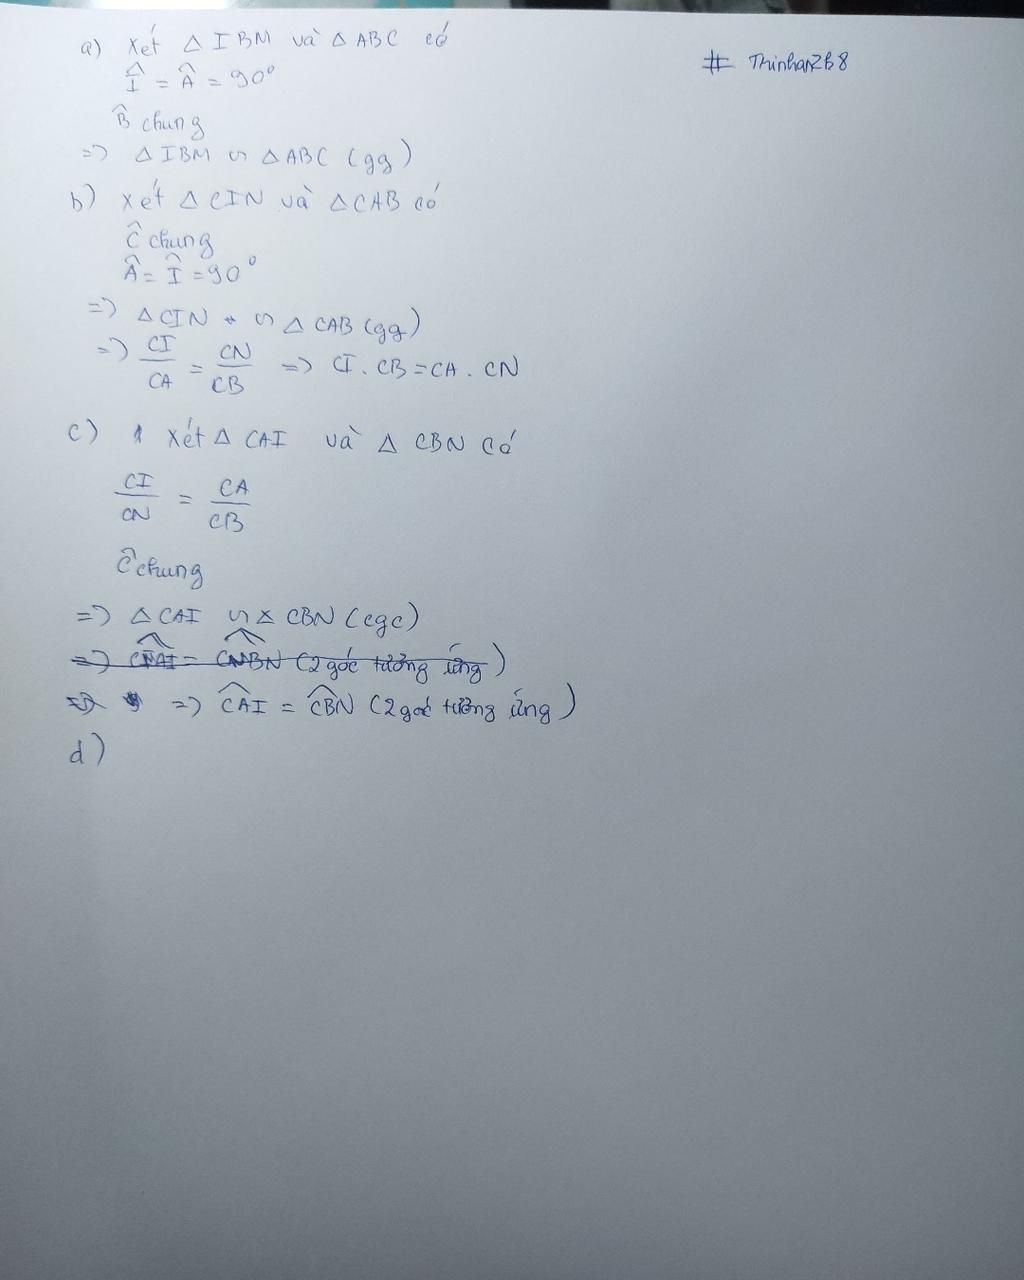 a) Xét Δ IBM và Δ ABC có
# Thinhan2k8
Î = Â = 90°
B̂ chung
=> Δ IBM ∽ Δ ABC (gg)
b) Xét Δ CIN và Δ CAB có
Ĉ chung
Â = Î = 90°
=> Δ CIN ∽ Δ CAB (gg)
=> CI/CA = CN/CB => CI . CB = CA . CN
c) Xét Δ CAI và Δ CBN có
CI/CN = CA/CB
Ĉ chung
=> Δ CAI ∽ Δ CBN (cgc)
(2 góc tương ứng)
=> CAI = CBN (2 góc tương ứng)
d)